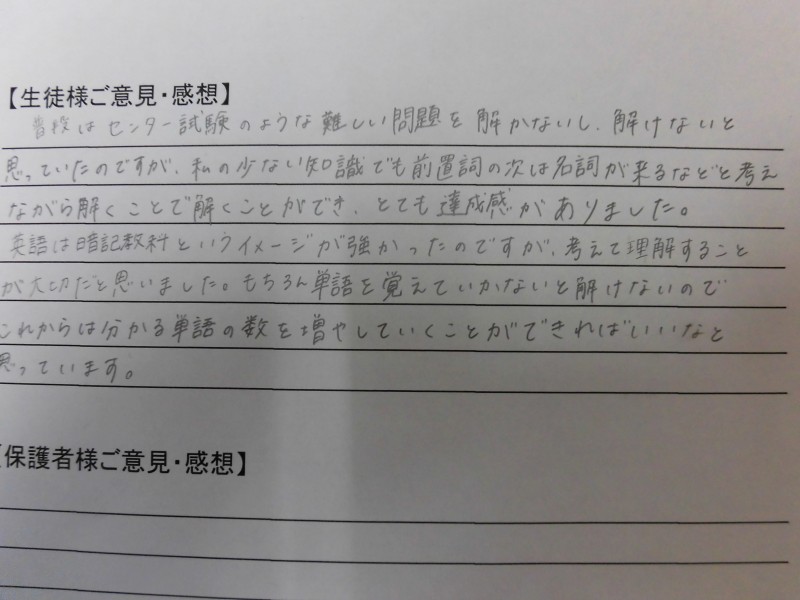 【生徒様ご意見・感想】
普段はセンター試験のような難しい問題を解かないし、解けないと
思っていたのですが、私の少ない知識でも前置詞の次は名詞が来るなどと考え
ながら解くことで解くことができ、とても達成感がありました。
英語は暗記教科というイメージが強かったのですが、考えて理解すること
が大切だと思いました。もちろん単語を覚えていかないと解けないので
これからは分かる単語の数を増やしていくことができればいいなと
思っています。
【保護者様ご意見・感想】